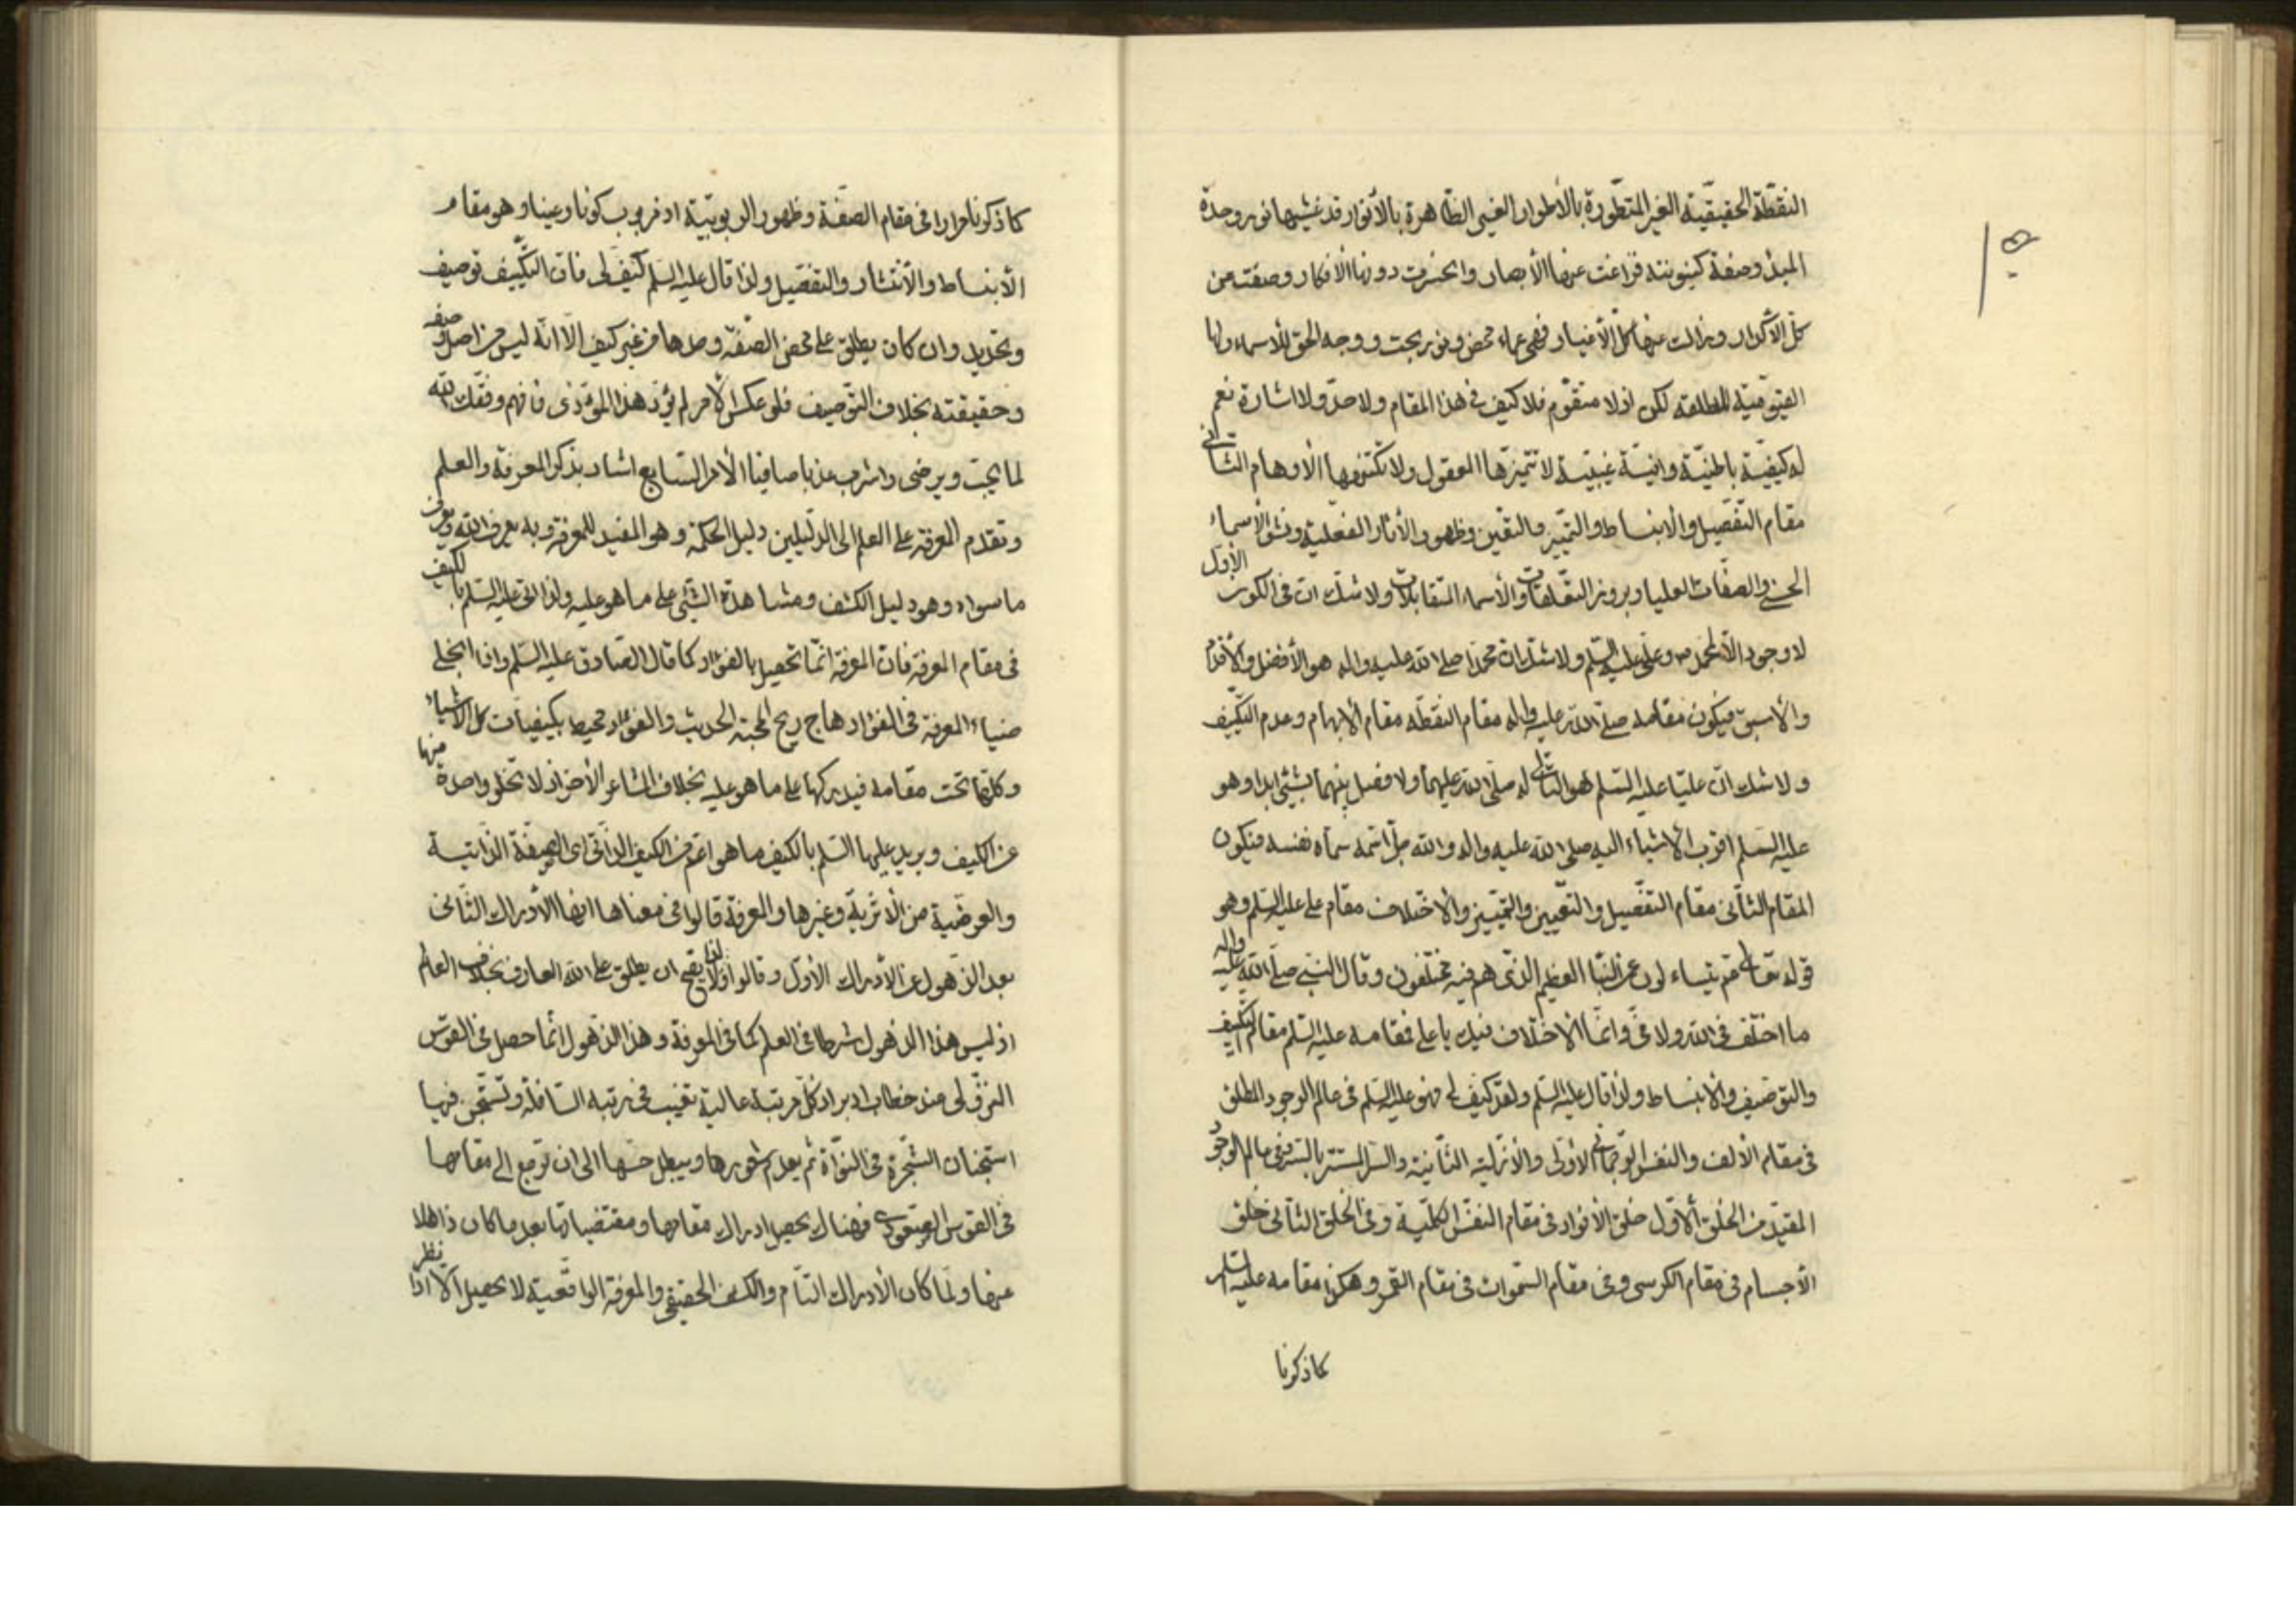 النقطة الحقيقية الغير المتطورة بالأطوار الغير الظاهرة بالأنوار قد غشيها نور وحدة
المبدأ وصفة كينونته فزاغت عنها الأبصار وانحسرت دونها الأفكار وصفت من
كل الأكدار وزالت عنها كل الأغيار فهي عماء محض ونور بحت ووجه الحق للأسماء ولها
القيومية المطلقة لكن اذ لا متقوم فلا كيف في هذا المقام ولا حد ولا اشارة نعم
له كيفية باطنية وانية غيبية لا تميزها العقول ولا تكتنهها الأوهام الثاني
مقام التفصيل والانبساط والتمييز والتعين وظهور الأثار الفعلية ونشو الأسماء
الحسنى والصفات العليا وبروز التعلقات والأسماء المتقابلات ولا شك ان في الكون الأول
لا وجود الا لمحمد ص وعلي عليه السلم ولا شك ان محمدا صلى الله عليه واله هو الأفضل والأقدم
والأسبق فيكون مقامه صلى الله عليه واله مقام النقطة مقام الأبهام وعدم التكيف
ولا شك ان عليا عليه السلم هو التالي له صلى الله عليهما ولا فصل بينهما بشيء ابدا وهو
عليه السلم اقرب الأشياء اليه صلى الله عليه واله والله جل اسمه سماه نفسه فيكون
المقام الثاني مقام التفصيل والتعيين والتمييز والاختلاف مقام علي عليه السلم وهو
قوله تعالى عم يتساءلون عن النبأ العظيم الذي هم فيه مختلفون وقال النبي صلى الله عليه واله
ما اختلف في الله ولا في وانما الاختلاف فيك يا علي فمقامه عليه السلم مقام التكيف
والتوصيف والانبساط ولذا قال عليه السلم ولقد كيف لي فهو عليه السلم في عالم الوجود المطلق
في مقام الألف والنفس الرحماني الأولى والأزلية الثانية والسر المستتر بالسر وفي عالم الوجود
المقيد من الخلق الأول خلق الأنوار في مقام النفس الكلية وفي الخلق الثاني خلق
الأجسام في مقام الكرسي وفي مقام السموات في مقام القمر وهكذا مقامه عليه السلم
كما ذكرنا
كما ذكرنا مرارا في مقام الصفة وظهور الربوبية اذ مربوب كونا وعينا وهو مقام
الأنبساط والأنتشار والتفصيل ولذا قال عليه السلم كيف لي فان التكييف توصيف
وتحديد وان كان يطلق على محض الصفة وحدها من غير كيف الا انه ليس من اصل وصفه
وحقيقته بخلاف التوصيف فلو عكس الأمر لم يؤد هذا المؤدى فافهم وفقك الله
لما يحب ويرضى واشرب عذبا صافيا الأمر السابع اشار بذكر المعرفة والعلم
وتقدم المعرفة على العلم الى الدليلين دليل الحكمة وهو المفيد للمعرفة وبه يعرف الله ويعرف
ما سواه وهو دليل الكشف ومشاهدة الشيء على ما هو عليه ولذا اتى عليه السلم بالكيف
في مقام المعرفة فان المعرفة انما تحصيل بالفؤاد كما قال الصادق عليه السلم واذا انجلى
ضياء المعرفة في الفؤاد هاج ريح المحبة الحديث والفؤاد محيط بكيفيات كل الأشياء
وكلها تحت مقامه فيدركها على ما هو عليه بخلاف المشاعر الأخر اذ لا تخلو واحدة منها
عن الكيف ويريد عليهما السلم بالكيف ما هو اعم من الكيف الذاتي اي الصفة الذاتية
والعرضية من الأثرية وغيرها والمعرفة قالوا في معناها انها الأدراك الثاني
بعد الذهول عن الأدراك الأول وقالوا ولذا لا يصح ان يطلق على الله العارف بخلاف العالم
اذ ليس هذا الذهول شرطا في العلم كما في المعرفة وهذا الذهول انما حصل في القوس
النزولي عند خطاب ادبر اذ كل مرتبة عالية تغيب في رتبة السافلة وتستجن فيها
استجنان الشجرة في النواة ثم يعدم شعورها ويبطل حسها الى ان ترجع الى مقامها
في القوس الصعودي فهناك يحصل ادراك مقامها ومقتضياتها بعد ما كان ذاهلا
عنها ولما كان الأدراك التام والكشف الحقيقي والمعرفة الواقعية لا يحصل الا اذا نظر